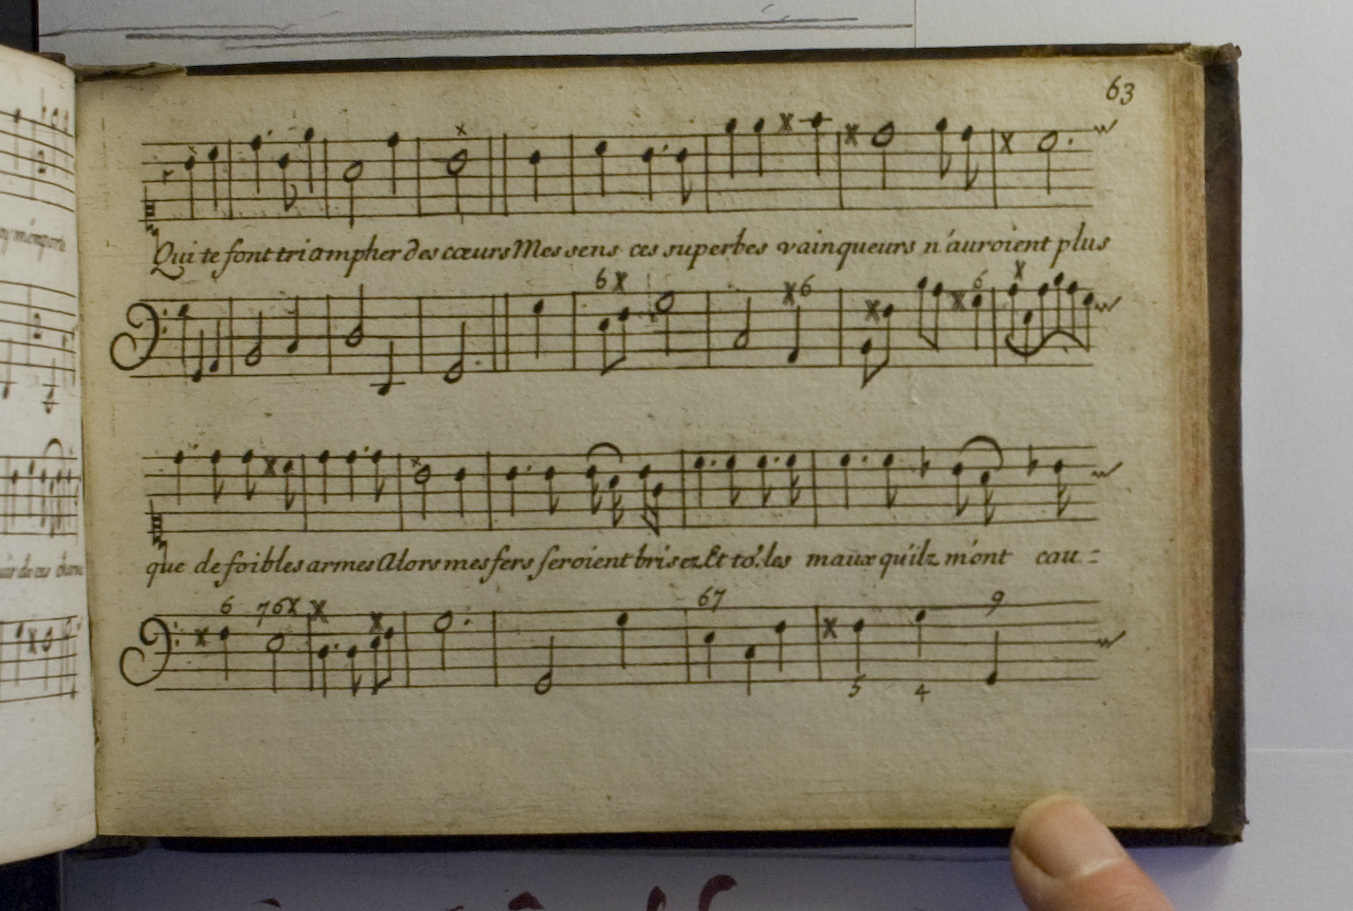 63
Qui te font triompher des cœurs Mes sens ces superbes vainqueurs n'auroient plus
6 x x6 6 x
que de foibles armes Alors mes fers seroient brisez Et to.' les maux qu'ilz m'ont cau=
6 76x 67 9
5 4